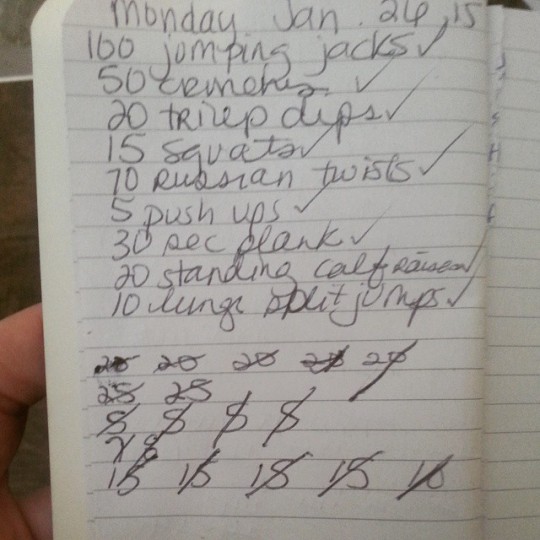 Monday Jan. 26, 15
100 jumping jacks ✓
50 crunches ✓
20 tricep dips ✓
15 squats ✓
70 Russian twists ✓
5 push ups ✓
30 sec plank ✓
20 standing calf raises ✓
10 lunge split jumps ✓
20 20 20 20 20
25 25
5 5 5 5
15 15 15 15 10